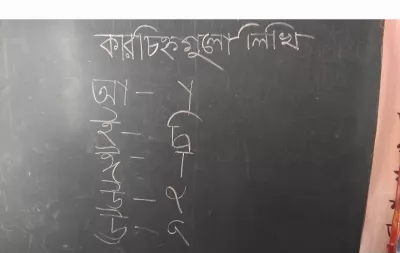 কারচিহ্নগুলো লিখি
আ - া
ই - ি
ঈ - ী
উ - ু
ঊ - ূ